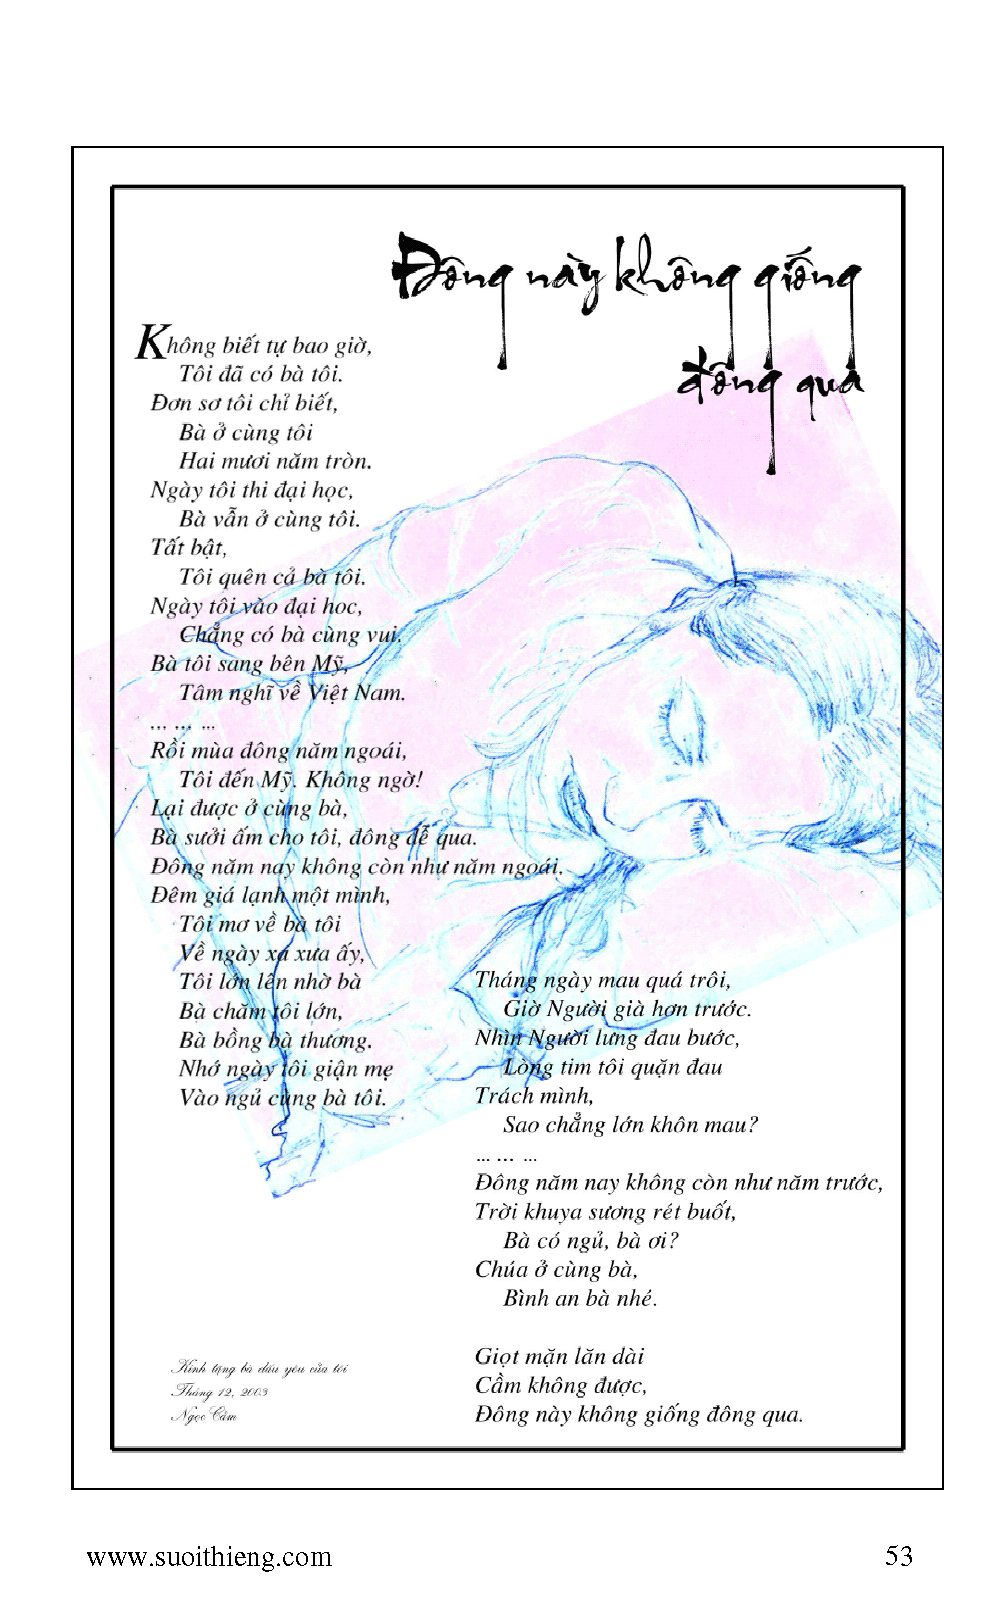 Đông này không giống
đông qua
Không biết tự bao giờ,
Tôi đã có bà tôi.
Đơn sơ tôi chỉ biết,
Bà ở cùng tôi
Hai mươi năm tròn.
Ngày tôi thi đại học,
Bà vẫn ở cùng tôi.
Tất bật,
Tôi quên cả bà tôi.
Ngày tôi vào đại hoc,
Chẳng có bà cùng vui.
Bà tôi sang bên Mỹ,
Tâm nghĩ về Việt Nam.
... ... ...
Rồi mùa đông năm ngoái,
Tôi đến Mỹ. Không ngờ!
Lại được ở cùng bà,
Bà sưởi ấm cho tôi, đông dễ qua.
Đông năm nay không còn như năm ngoái.
Đêm giá lạnh một mình,
Tôi mơ về bà tôi
Về ngày xa xưa ấy,
Tôi lớn lên nhờ bà
Bà chăm tôi lớn,
Bà bồng bà thương.
Nhớ ngày tôi giận mẹ
Vào ngủ cùng bà tôi.
Tháng ngày mau quá trôi,
Giờ Người già hơn trước.
Nhìn Người lưng đau bước,
Lòng tim tôi quặn đau
Trách mình,
Sao chẳng lớn khôn mau?
... ... ...
Đông năm nay không còn như năm trước,
Trời khuya sương rét buốt,
Bà có ngủ, bà ơi?
Chúa ở cùng bà,
Bình an bà nhé.
Giọt mặn lăn dài
Cầm không được,
Đông này không giống đông qua.
Kính tặng bà dấu yêu của tôi
Tháng 12, 2003
Ngọc Cầm
www.suoithieng.com
53